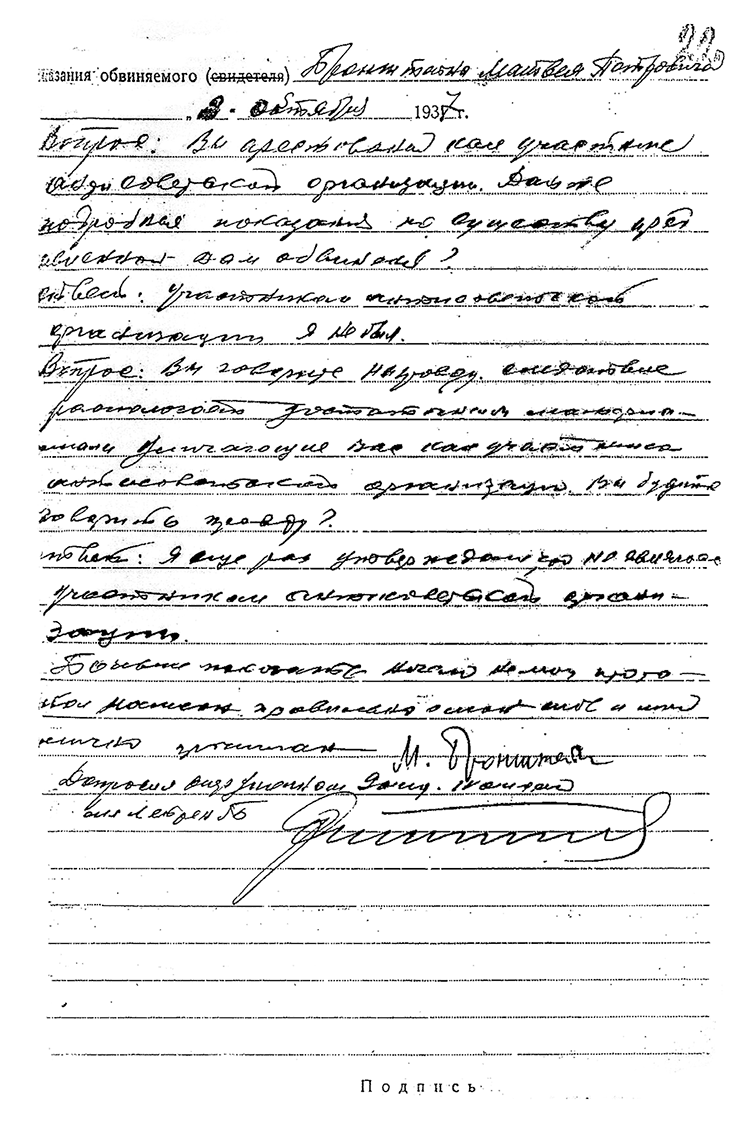 22
казания обвиняемого (свидетеля) Бронштейна Матвея Петровича
„2“ октября 1937 г.
Вопрос: Вы арестованы как участник
антисоветской организации. Дайте
подробные показания по существу предъ
явленного вам обвинения?
ответ: Участником антисоветской
организации я не был.
Вопрос: Вы говорите неправду. следствие
располагает достаточным материа-
лами уличающие вас как участника
антисоветской организации. Вы будите
говорить правду?
ответ: Я еще раз утверждаю что не являлся
участником антисоветской органи-
зации.
Больше показать ничего не могу прото-
кол написан правильно с моих слов и мной
лично прочитан М. Бронштейн
Допросил
Подпись